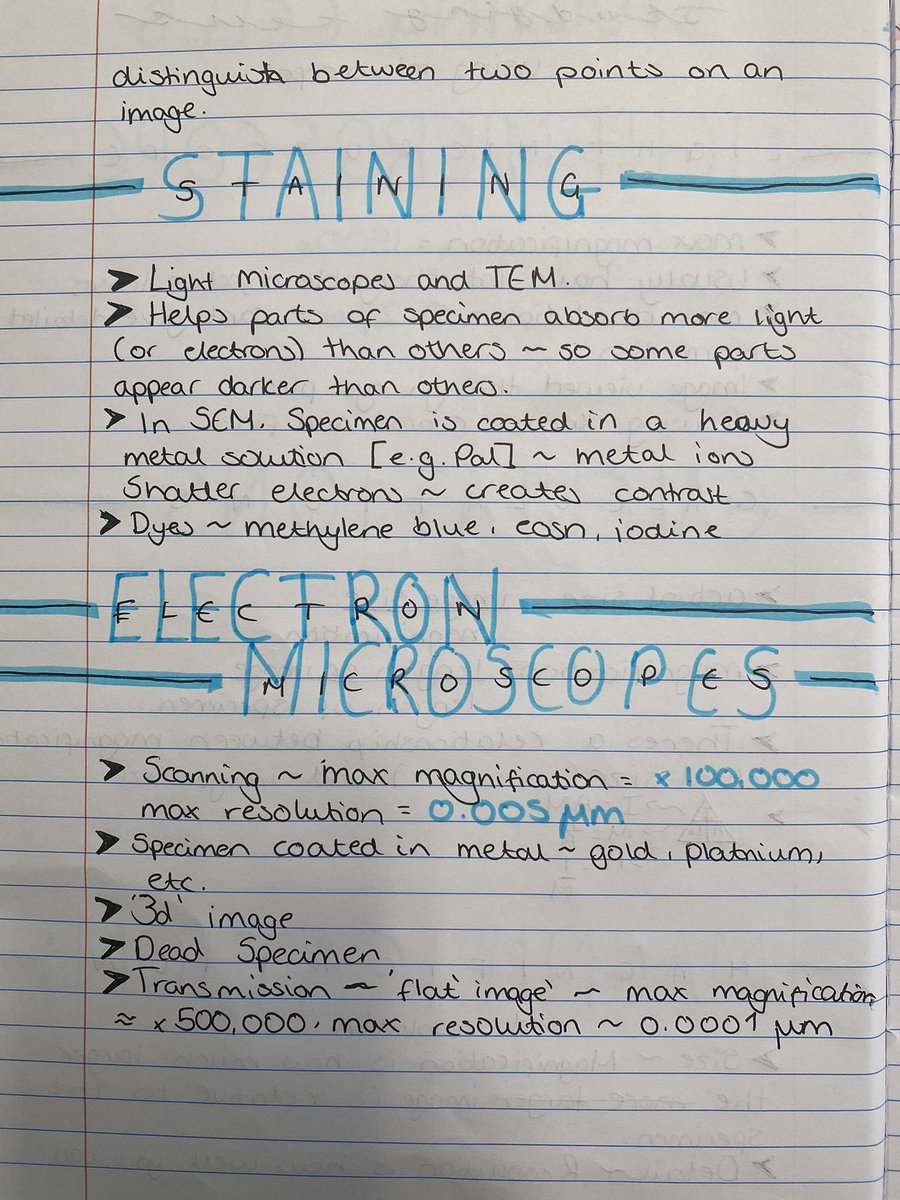 distinguish between two points on an
image.
STAINING
➤ Light Microscopes and TEM.
➤ Helps parts of specimen absorb more light
(or electrons) than others ~ so some parts
appear darker than others.
➤ In SEM. Specimen is coated in a heavy
metal solution [e.g. Pal] ~ metal ions
Shatter electrons ~ creates contrast
➤ Dyes ~ methylene blue, eosn, iodine
ELECTRON
MICROSCOPES
➤ Scanning ~ max magnification = x100,000
max resolution = 0.005 μm
➤ Specimen coated in metal ~ gold, platnium,
etc.
➤ '3d' image
➤ Dead Specimen
➤ Transmission ~ 'flat image' ~ max magnification
≈ x500,000. max resolution ~ 0.0001 μm